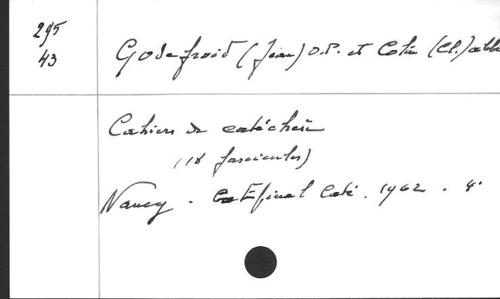 295
43
Godefroid (Jean) O.P. et Colin (Cl.) abbé
Cahiers de catéchèse
(18 fascicules)
Nancy. Cat. 1962. 4°